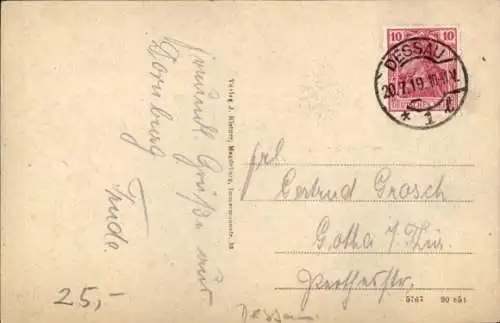 Freundl. Grüße aus
Dornburg
Trude.
Verlag J. Kleiner, Magdeburg,
10 10
DESSAU
20.7.19. 10-11 V.
* 1
DEUTSCHES
Frl.
Gertrud Grosch
Gotha i/ Thür.
25,-
5767 20 651
Dessau